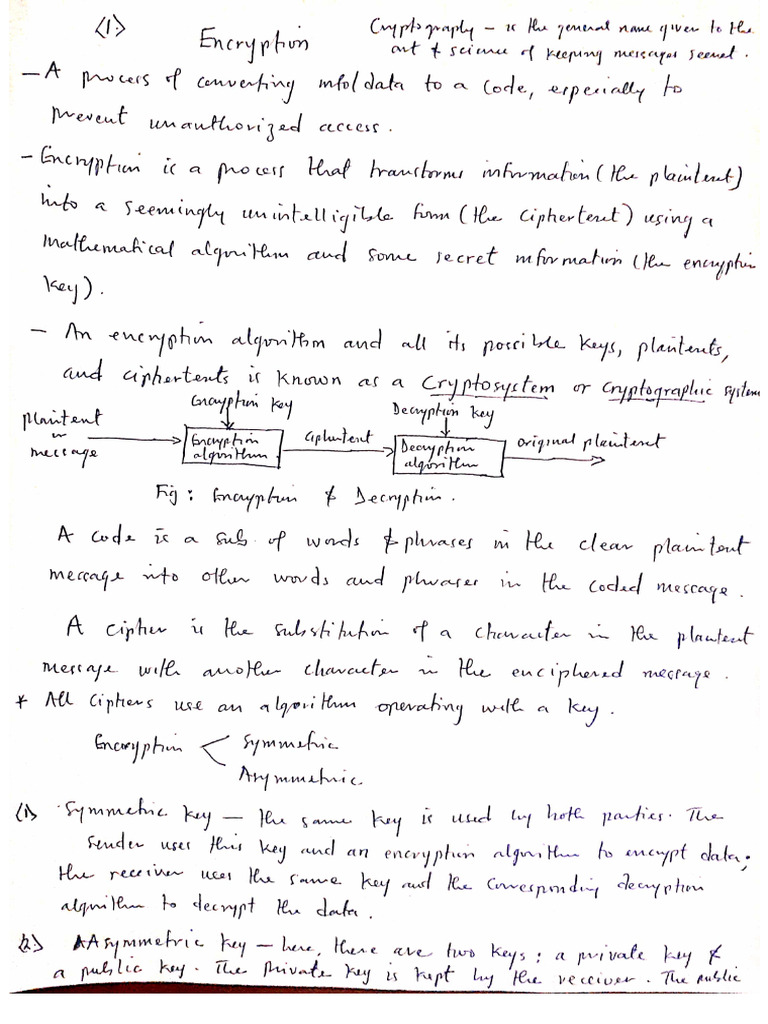 <1>
Encryption
Cryptography – is the general name given to the
art & science of keeping messages secret.
– A process of converting info/data to a code, especially to
prevent unauthorized access.
– Encryption is a process that transforms information (the plaintext)
into a seemingly unintelligible form (the ciphertext) using a
mathematical algorithm and some secret information (the encryption
key).
– An encryption algorithm and all its possible keys, plaintexts,
and ciphertexts is known as a Cryptosystem or Cryptographic system
Encryption key
Decryption key
plaintext
or
message
Encryption
algorithm
ciphertext
Decryption
algorithm
original plaintext
Fig: Encryption & Decryption.
A code is a sub. of words & phrases in the clear plaintext
message into other words and phrases in the coded message.
A cipher is the substitution of a character in the plaintext
message with another character in the enciphered message.
* All ciphers use an algorithm operating with a key.
Encryption
Symmetric
Asymmetric
(1) Symmetric key – the same key is used by both parties. The
sender uses this key and an encryption algorithm to encrypt data;
the receiver uses the same key and the corresponding decryption
algorithm to decrypt the data.
(2) Asymmetric key – here, there are two keys: a private key &
a public key. The private key is kept by the receiver. The public